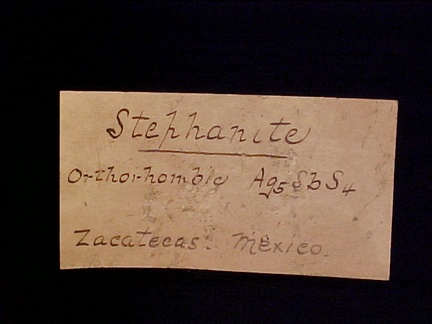 Stephanite
Orthorhombic Ag5SbS4
Zacatecas. Mexico.